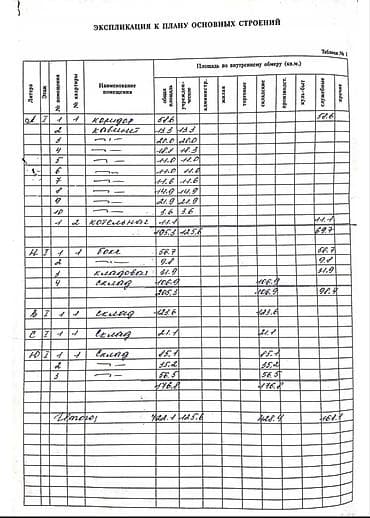 ЭКСПЛИКАЦИЯ К ПЛАНУ ОСНОВНЫХ СТРОЕНИЙ
Таблица № 1
Литера Этаж № помещения № квартиры Наименование помещения Площадь по внутреннему обмеру (кв.м.)
общая площадь учрежденческое администр. жилая торговые складские производст. культ-быт служебные прочие
А I 1 1 коридор 58.6 58.6
2 кабинет 13.3 13.3
3 —"— 20.0 20.0
4 —"— 18.3 18.3
5 —"— 11.0 11.0
6 —"— 11.0 11.0
7 —"— 11.6 11.6
8 —"— 14.9 14.9
9 —"— 21.9 21.9
10 —"— 3.6 3.6
1 2 котельная 11.1 11.1
195.3 125.6 69.7
Н I 1 1 бокс 56.7 56.7
2 —"— 9.8 9.8
3 кладовая 31.9 31.9
4 склад 106.9 106.9
205.3 106.9 98.4
Б I 1 1 склад 123.6 123.6
С I 1 1 склад 21.1 21.1
Ю I 1 1 склад 85.1 85.1
2 —"— 35.2 35.2
3 —"— 56.5 56.5
176.8 176.8
Итого: 125.6 428.4 168.1